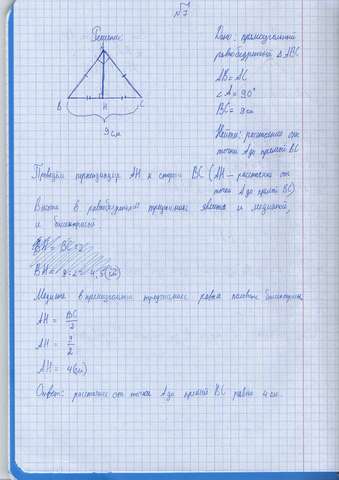 №7
Решение:
Дано: прямоугольный
равнобедренный △ABC
AB = AC
∠A = 90°
BC = 9 см
B H C
9 см
Найти: расстояние от
точки A до прямой BC
Проведём перпендикуляр AH к стороне BC (AH — расстояние от
точки A до прямой BC)
Высота в равнобедренном треугольнике является и медианой,
и биссектрисой
BH = BC:2
BH = 9:2 = 4.5(см)
Медиана в прямоугольном треугольнике равна половине
AH = BC/2
AH = 9/2
AH = 4(см)
Ответ: расстояние от точки A до прямой BC равно 4 см.